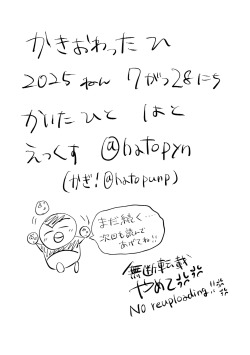 かきおわったひ
2025ねん 7がつ28にち
かいたひと はと
えっくす @hatopyn
(かぎ!@hatopunp)
まだ続く…
次回も読んで
あげてね!!
無断転載
やめて
NO reuploading